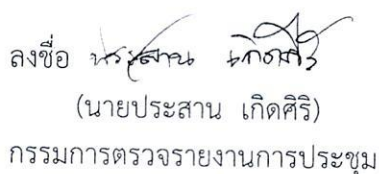 ลงชื่อ ประสาน เกิดศิริ
(นายประสาน เกิดศิริ)
กรรมการตรวจรายงานการประชุม